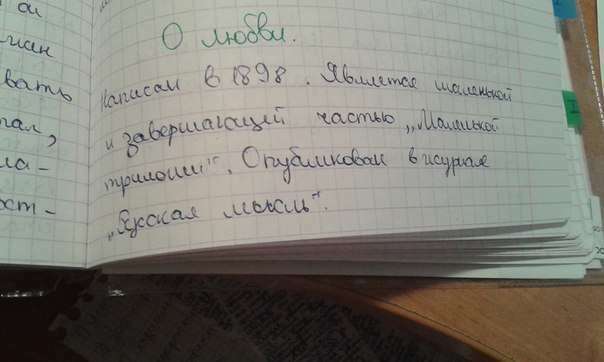 О любви.
Написан в 1898. Является маленькой
и завершающей частью „Маленькой
трилогии". Опубликован в журнале
„Русская мысль".
ан
вать
гал,
ла-
ост-